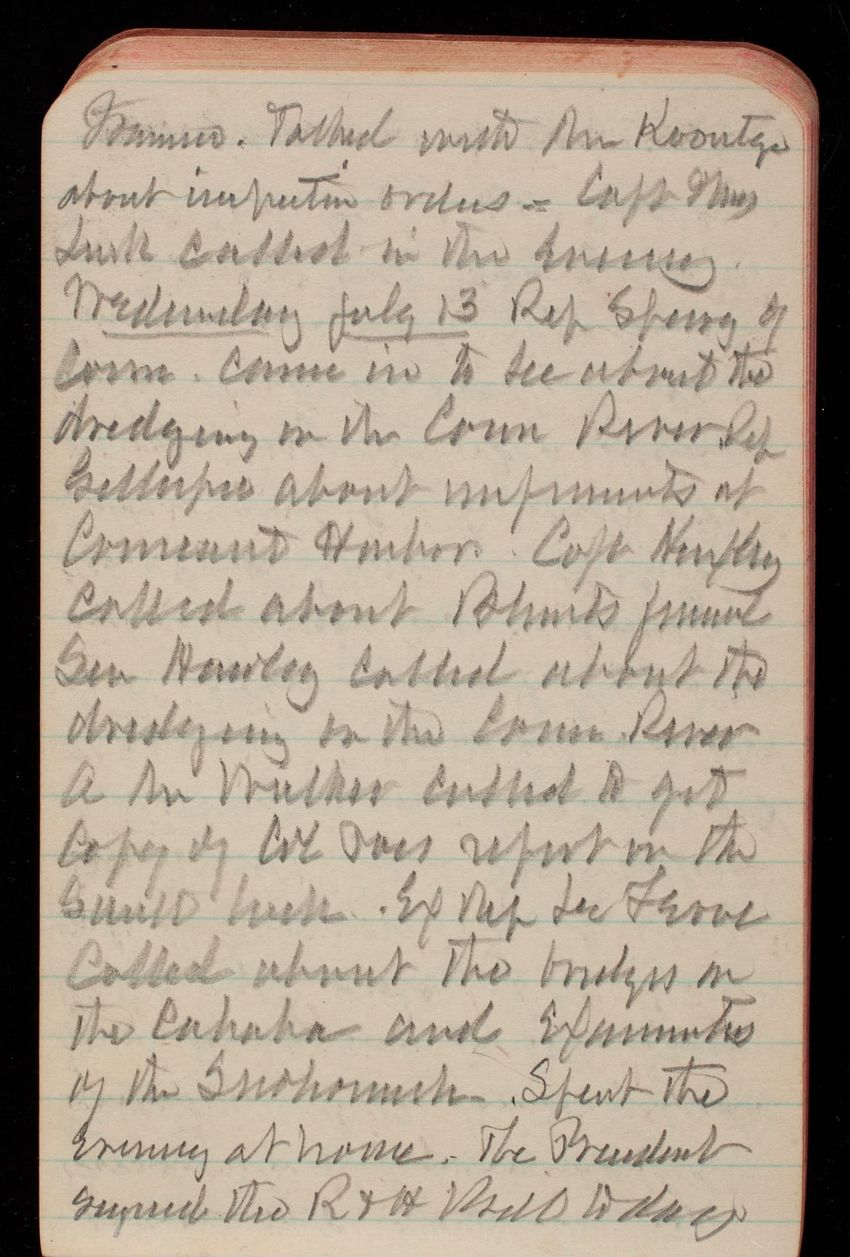 Francisco. Talked with Mr Koontze
about inspectin orders = Capt Thos
Lusk called in the Evening.
Wednesday July 13 Rep Sperry of
Conn. came in to see about the
dredging on the Conn River. Rep
Gillespie about impments at
Conneaut Harbor. Capt
called about Blunts funeral
Sen Hawley called about the
dredging on the Conn. River
A Mr Walker called to get
Copy of Col report on the
Sault lock. Ex Rep
Called about the bridges on
the Cahaba and
of the Snohomish. Spent the
evening at home. The President
signed the R & H Bill today